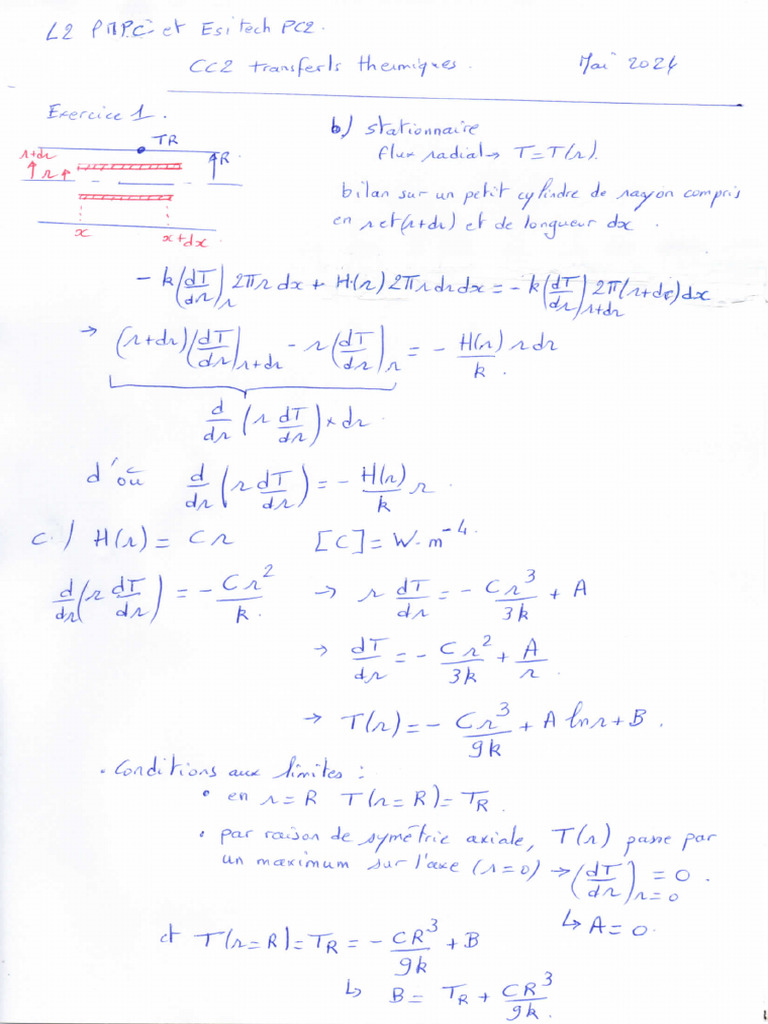 L2 PMPC et Esitech PC2.
CC2 transferts thermiques. Mai 2024
Exercice 1.
TR
r+dr
r
R
x
x+dx
b) stationnaire
flux radial → T=T(r).
bilan sur un petit cylindre de rayon compris
en r et (r+dr) et de longueur dx.
-k(dT/dr)_r 2πr dx + H(r) 2πr dr dx = -k(dT/dr)_{r+dr} 2π(r+dr) dx
→ (r+dr)(dT/dr)_{r+dr} - r(dT/dr)_r = - H(r)/k r dr
d/dr (r dT/dr) × dr.
d'où d/dr (r dT/dr) = - H(r)/k r.
c.) H(r) = Cr [C] = W.m^-4.
d/dr (r dT/dr) = - Cr^2/k. → r dT/dr = - Cr^3/3k + A
→ dT/dr = - Cr^2/3k + A/r.
→ T(r) = - Cr^3/9k + A ln r + B.
• Conditions aux limites :
• en r=R T(r=R) = TR.
• par raison de symétrie axiale, T(r) passe par
un maximum sur l'axe (r=0) → (dT/dr)_{r=0} = 0.
↳ A=0.
et T(r=R) = TR = - CR^3/9k + B
↳ B = TR + CR^3/9k.